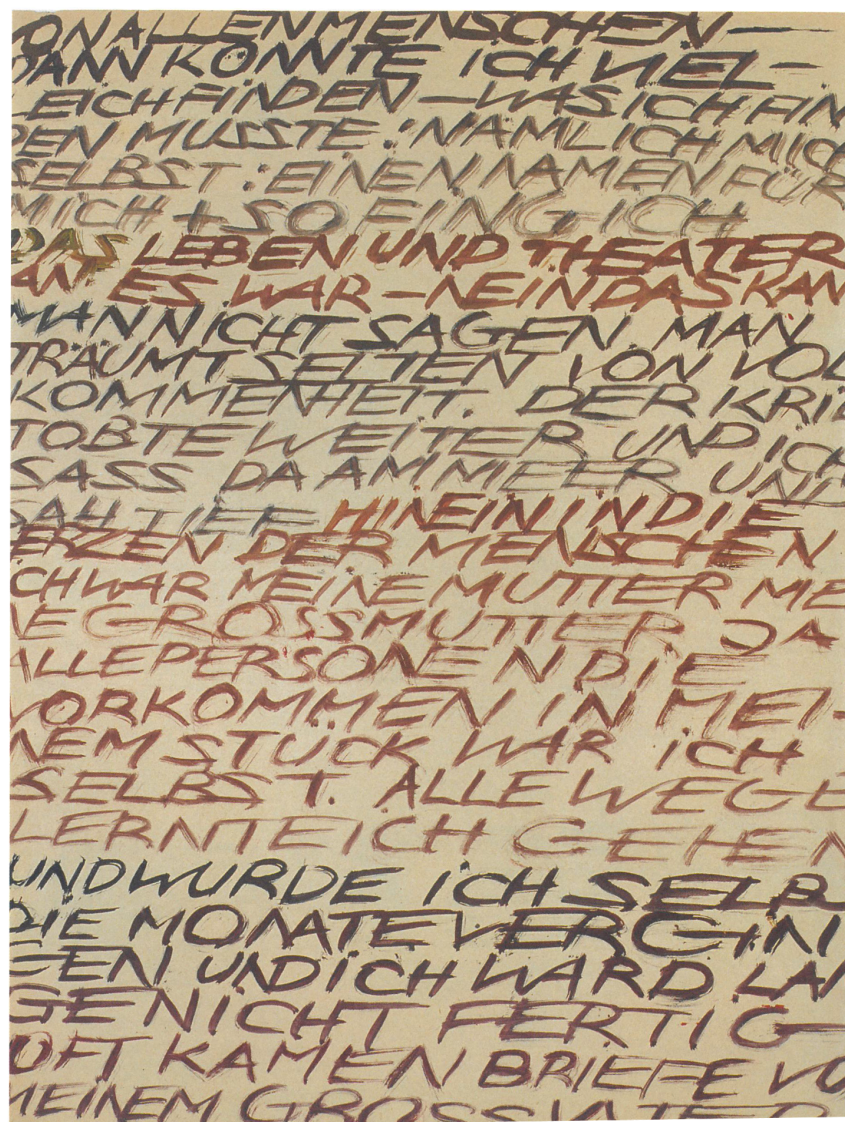 ON ALLEN MENSCHEN —
DANN KONNTE ICH VIEL-
LEICH FINDEN — WAS ICH FIN
DEN MUSSTE: NÄMLICH MICH
SELBST: EINEN NAMEN FÜR
MICH + SO FING ICH
DAS LEBEN UND THEATER
AN. ES WAR — NEIN DAS KAN
MAN NICHT SAGEN. MAN
TRÄUMT SELTEN VON VOL
KOMMENHEIT. DER KRIE
TOBTE WEITER UND ICH
SASS DA AM MEER UND
SAH TIEF HINEIN IN DIE
ERZEN DER MENSCHEN
ICH WAR MEINE MUTTER ME
NE GROSSMUTTER JA
ALLE PERSONEN DIE
VORKOMMEN IN MEI-
NEM STÜCK WAR ICH
SELBST. ALLE WEGE
LERNTE ICH GEHEN
UND WURDE ICH SELB
DIE MONATE VERGIN
GEN UND ICH WARD LAN
GE NICHT FERTIG —
OFT KAMEN BRIEFE VO
MEINEM GROSSVATER